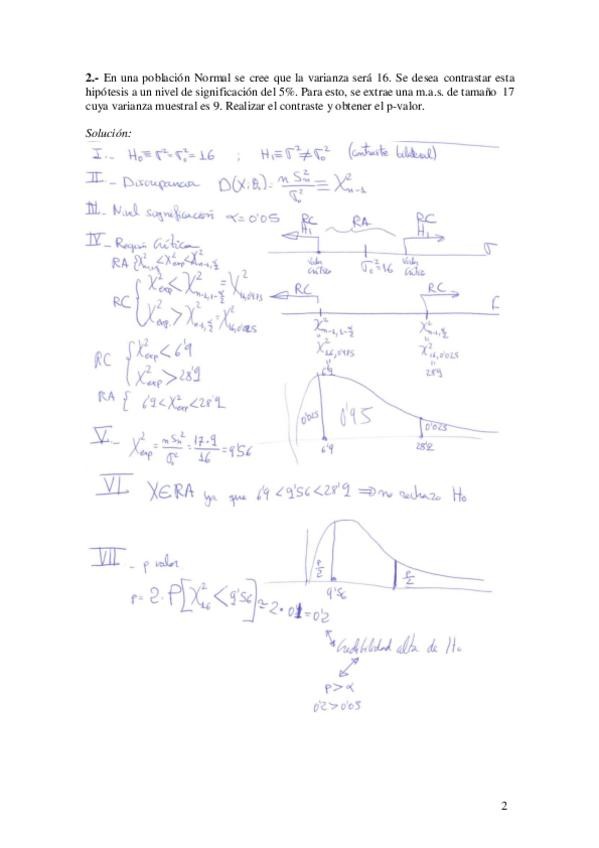 2.- En una población Normal se cree que la varianza será 16. Se desea contrastar esta
hipótesis a un nivel de significación del 5%. Para esto, se extrae una m.a.s. de tamaño 17
cuya varianza muestral es 9. Realizar el contraste y obtener el p-valor.
Solución:
I.- H₀≡σ²=σ₀²=16 ; H₁≡σ²≠σ₀² (contraste bilateral)
II.- Discrepancia D(X;θ₀)= nSₙ²/σ₀² ≡ χ²ₙ₋₁
III.- Nivel significación α=0'05
RC H₁ RA RC H₁
Valor crítico σ₀²=16 Valor crítico σ
IV- Región Crítica
RA {χ²ₙ₋₁,
RC { χ²exp < χ²n-1,1-α/2 = χ²16,0'975
χ²exp > χ²n-1,α/2 = χ²16,0'025
RC RC
χ²n-1,1-α/2 χ²n-1,α/2
χ²16,0'975 χ²16,0'025
6'9 28'9
RC { χ²exp < 6'9
χ²exp > 28'9
RA { 6'9 < χ²exp < 28'9
0'025 0'95 0'025
6'9 28'9
V.- χ²exp = nSₙ²/σ₀² = 17·9/16 = 9'56
VI X∈RA ya que 6'9 < 9'56 < 28'9 ⇒ no rechazo H₀
VII - p valor
p/2 p/2
9'56
p= 2·P[χ²₁₆ < 9'56] ≃ 2·0'1=0'2
Credibilidad alta de H₀
p>α
0'2>0'05
2